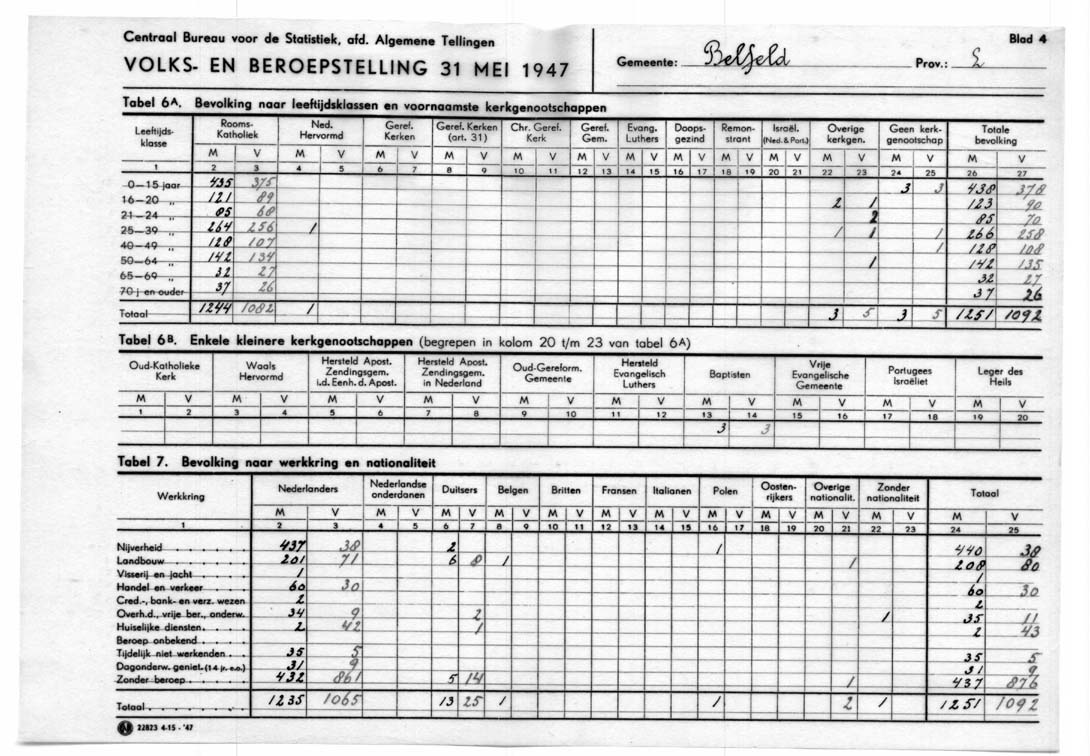 Centraal Bureau voor de Statistiek, afd. Algemene Tellingen
VOLKS- EN BEROEPSTELLING 31 MEI 1947
Gemeente: Belfeld Prov.: L
Blad 4
Tabel 6A. Bevolking naar leeftijdsklassen en voornaamste kerkgenootschappen
Leeftijds-klasse Rooms-Katholiek Ned. Hervormd Geref. Kerken Geref. Kerken (art. 31) Chr. Geref. Kerk Geref. Gem. Evang. Luthers Doops-gezind Remon-strant Israël. (Ned. & Port.) Overige kerkgen. Geen kerk-genootschap Totale bevolking
M V M V M V M V M V M V M V M V M V M V M V M V M V
1 2 3 4 5 6 7 8 9 10 11 12 13 14 15 16 17 18 19 20 21 22 23 24 25 26 27
0—15 jaar 435 375 3 3 438 378
16—20 „ 121 89 2 1 123 90
21—24 „ 85 68 2 85 70
25—39 „ 264 256 1 1 1 1 266 258
40—49 „ 128 107 1 128 108
50—64 „ 142 134 1 142 135
65—69 „ 32 27 32 27
70 j en ouder 37 26 37 26
Totaal 1244 1082 1 3 5 3 5 1251 1092
Tabel 6B. Enkele kleinere kerkgenootschappen (begrepen in kolom 20 t/m 23 van tabel 6A)
Oud-Katholieke Kerk Waals Hervormd Hersteld Apost. Zendingsgem. i.d. Eenh. d. Apost. Hersteld Apost. Zendingsgem. in Nederland Oud-Gereform. Gemeente Hersteld Evangelisch Luthers Baptisten Vrije Evangelische Gemeente Portugees Israëliet Leger des Heils
M V M V M V M V M V M V M V M V M V M V
1 2 3 4 5 6 7 8 9 10 11 12 13 14 15 16 17 18 19 20
3 3
Tabel 7. Bevolking naar werkkring en nationaliteit
Werkkring Nederlanders Nederlandse onderdanen Duitsers Belgen Britten Fransen Italianen Polen Oosten-rijkers Overige nationalit. Zonder nationaliteit Totaal
M V M V M V M V M V M V M V M V M V M V M V M V
1 2 3 4 5 6 7 8 9 10 11 12 13 14 15 16 17 18 19 20 21 22 23 24 25
Nijverheid 437 38 2 1 440 38
Landbouw 201 71 6 8 1 1 208 80
Visserij en jacht 1 1
Handel en verkeer 60 30 60 30
Cred.-, bank- en verz. wezen 2 2
Overh.d., vrije ber., onderw. 34 9 2 1 35 11
Huiselijke diensten 2 42 1 2 43
Beroep onbekend
Tijdelijk niet werkenden 35 5 35 5
Dagonderw. geniet. (14 jr. e.o.) 31 9 31 9
Zonder beroep 432 861 5 14 1 437 876
Totaal 1235 1065 13 25 1 1 2 1 1251 1092
N 22823 4-15 - '47